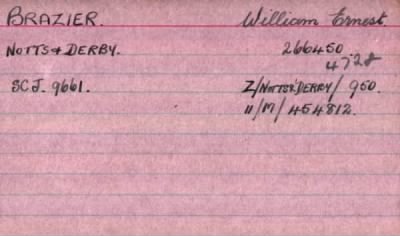 BRAZIER. William Ernest.
NOTTS & DERBY. 266450
4728
SCJ. 9661. Z/NOTTS&DERBY/950.
11/M/454812.